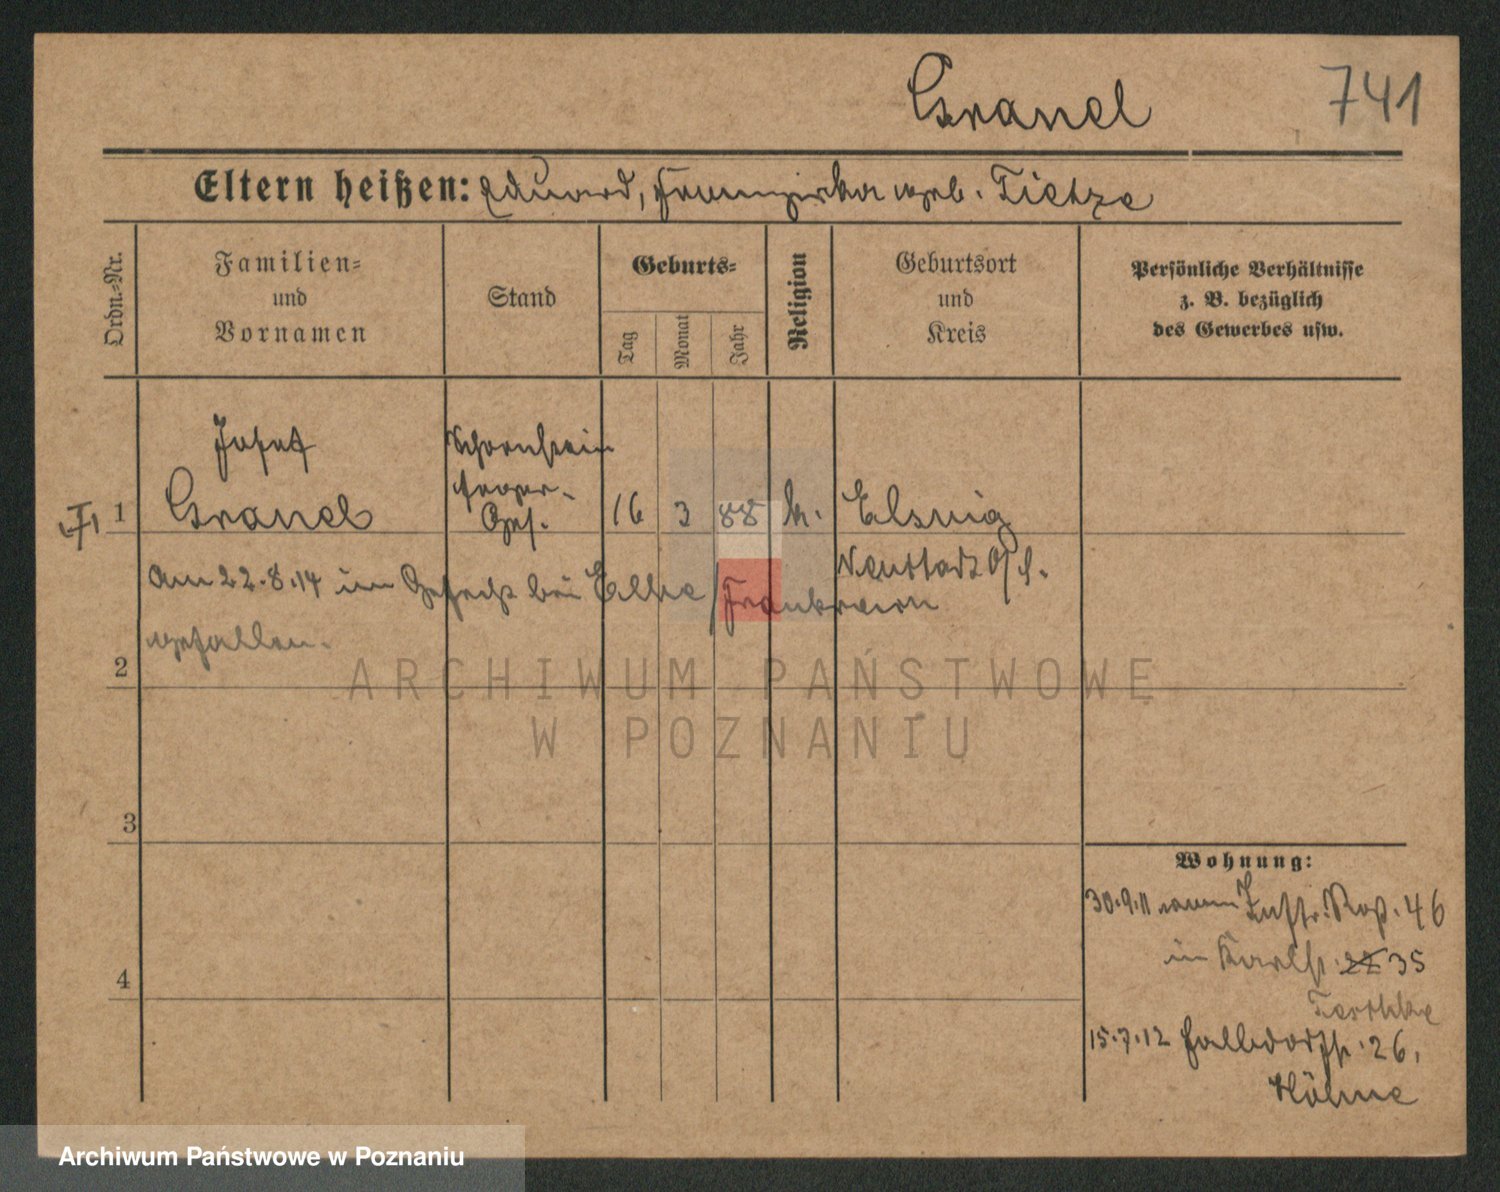 Granel
741
Eltern heißen: Eduard, Franziska geb. Tietze
Ordn.=Nr.
Familien=
und
Vornamen
Stand
Geburts=
Tag
Monat
Jahr
Religion
Geburtsort
und
Kreis
Persönliche Verhältnisse
z. B. bezüglich
des Gewerbes usw.
Josef
Schornstein
feger-
1 Granel Ges. 16 3 88 k. Elsnig
Neustadt O/S.
am 22.8.14 im Gefecht bei / Frankreich
gefallen.
2
3
4
Wohnung:
30.9.11 vom Inftr. Rgt. 46
in Karlstr. 35
15.7.12 26,
Höhne
ARCHIWUM PAŃSTWOWE
W POZNANIU
Archiwum Państwowe w Poznaniu